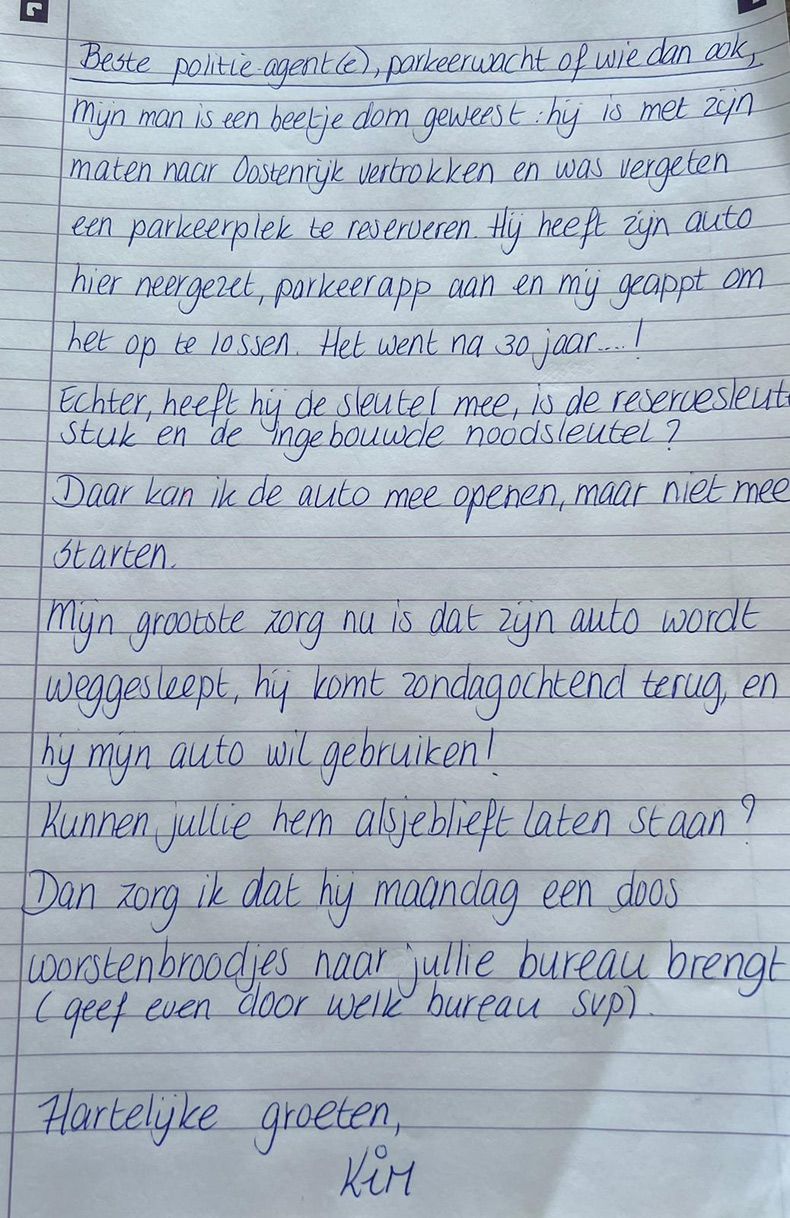 Beste politie agent(e), parkeerwacht of wie dan ook,
Mijn man is een beetje dom geweest: hij is met zijn
maten naar Oostenrijk vertrokken en was vergeten
een parkeerplek te reserveren. Hij heeft zijn auto
hier neergezet, parkeerapp aan en mij geappt om
het op te lossen. Het went na 30 jaar....!
Echter, heeft hij de sleutel mee, is de reservesleut
stuk en de ingebouwde noodsleutel?
Daar kan ik de auto mee openen, maar niet mee
starten.
Mijn grootste zorg nu is dat zijn auto wordt
weggesleept, hij komt zondagochtend terug, en
hij mijn auto wil gebruiken!
Kunnen jullie hem alsjeblieft laten staan?
Dan zorg ik dat hij maandag een doos
worstenbroodjes naar jullie bureau brengt
(geef even door welk bureau svp).
Hartelijke groeten,
Kim